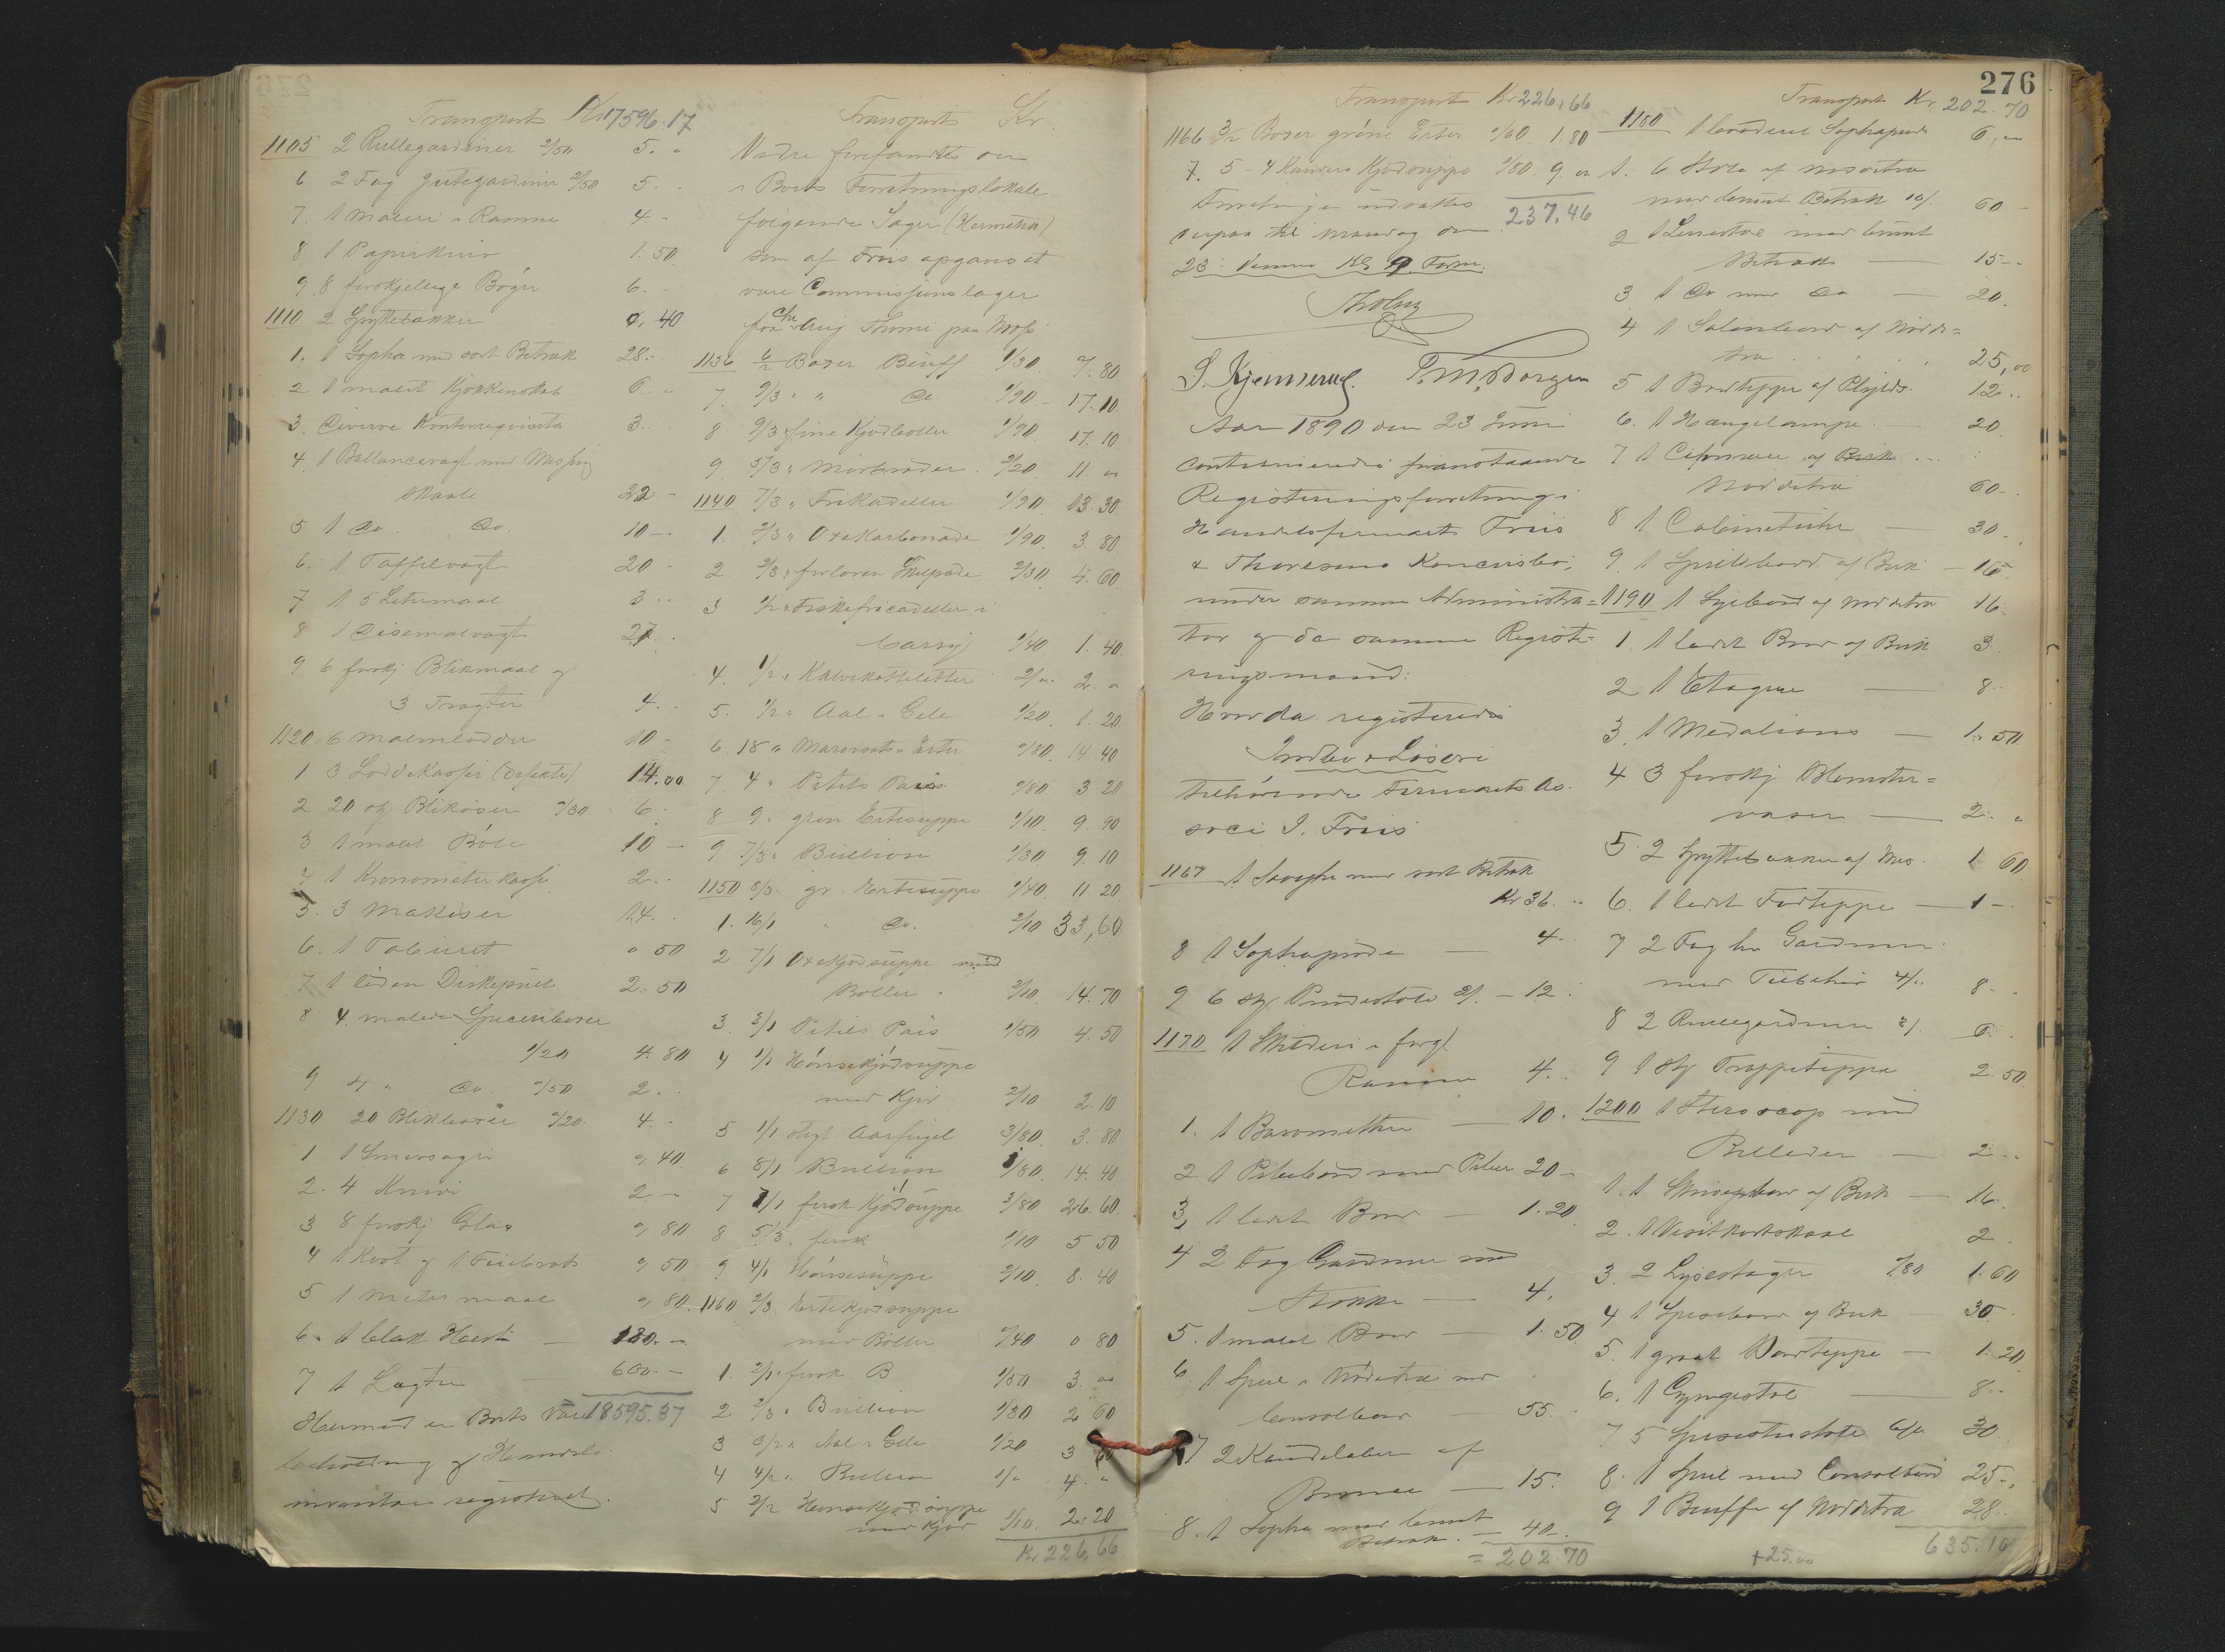 Transport Kr 17596.17
1105 2 Rullegardiner 2/50 5. "
6 2 Fag Jutegardiner 2/50 5. "
7. 1 Maleri i Ramme 4. "
8 1 Papirkurv 1.50
9. 8 forskjellige Bøger 6. "
1110 2 Spyttebakker 0,40
1. 1 Sopha med sort Betræk 28. "
2 1 malet Kjøkkenskab 6. "
3. Diverse Kontorrequisita 3. "
4. 1 Ballancevagt med Messing
skaale 22 -
5 1 Do. Do. 10 -
6. 1 Taffelvagt 20 -
7 1 5 Litermaal 3 "
8 1 Disemalvagt 27. "
9 6 forskj Blikmaal og
3 Tragter 4. "
1120. 6 Malmlodder 10 -
1 3 Loddekasser (defekte) 14.00
2 20 st Blikøser "/30 6.
3 1 malet Børe 10 -
4 1 Kronometerkasse 2. "
5. 3 Makiser 14. "
6. 1 Tabüret " 50
7. 1 liden Diskepult 2. 50
8 4 malede Specerikasser
1/20 4.80
9 4 " Do. "/50 2. "
1130 20 Blikkasser "/20. 4. "
1 1 Smørsøger 0,40
2. 4 Knive 2 -
3 8 forskj Glas 0,80
4 1 Kost og 1 Feiebret 0,50
5 1 Metermaal 0,80.
6. 1 blak Hest 180. "
7 1 Lægter 600. -
Hermed er Boets Vare 18595.37
beholdning og Handels
inventar registeret.
Transport Kr.
Videre forefandtes der
i Boets Forretningslokale
følgende Sager (Hermetik)
som af Friis opgaves at
være Commissionslager
fra Chr Aug Thorne paa Moss
1136 6/2 Boxer Beuff 1/30 7.80
7. 9/3 " " Do. 1/90 - 17.10
8 9/3 " fine Kjødboller 1/90 17.10
9 5/3 " Mørbrader. 2/20. 11 "
1140 7/3 " Frikadeller 1/90. 13.30
1. 2/3 " Oxekarbonade 1/90. 3.80
2 2/3 " forloren Skilpade 2/30 4.60
3 1/2 " Fiskefricadeller i
Carry 1/40 1.40
4. 1/2 " Kalvekotteletter 2/" 2. "
5. 1/2 " Aal i Gele 1/20. 1.20
6. 18 " Marovsats Erter "/80. 14 40
7. 4 " Petits Pais "/80 3 20
8 9 " grøn Ertesuppe 1/10. 9.90
9 7/3 " Bullion 1/30 9.10
1150 8/3 " gr. Ertesuppe 1/40 11.20
1. 16/1 " Do. 2/10 33,60
2 7/1 Oxekjødsuppe med
Boller " 2/10. 14.70
3. 3/1 Petits Pais 1/50 4.50
4 1/1 Hønsekjødsuppe
med Kjød 2/10 2.10
5 1/1 stegt Aarfugl 3/80. 3.80
6 8/1 Bullion 1/80. 14.40
7 7/1 fersk Kjødsuppe 3/80 26.60.
8 5/3. fersk 1/10 5 50
9 4/1 Hønsesuppe 2/10. 8.40
1160 2/3. Ertekjødsuppe
med Boller "/40 0 80
1. 2/1 " fersk B 1/50 3. "
2 2/3 " Bullion 1/30 2 60
3 3/2 " Aal i Gele 1/20 3 60
4 4/2 " Bullion 1/" 4. "
5 2/2 Hønsekjødsuppe
med Kjød 1/10. 2.20
Kr 226,66
276
Transport Kr 226,66
1166 3/2 Boxer grønne Erter "/60 1.80
7. 5 - 4 Kjødsuppe 1/80. 9. "
Forretningen udsattes 237,46
derpaa til Mandag den
23: dennes Kl 9 Form.
Tholng
S. Kjemserud. P. M. Borgen
Aar 1890 den 23 Juni
continueredes foranstaaende
Registeringsforretning i
Handelsfirmaet Friis
& Thoresens Koncursbo,
under samme Administra=
tor og de samme Registe=
ringsmænd:
Hvor da registeredes
Indbo & Løsøre
tilhørende Firmaets As.
soci J. Friis
1167 1 med sort Betræk
Kr 36. "
8 1 Sophapude — 4 -
9 6 st Pindestole 2/. - 12.
1170 1 Skilderi i forgl
Ramme 4. "
1. 1 Baromether — 10.
2 1 Pibebord med Piber 20 -
3, 1 ledet Bord — 1.20
4 2 Fag Gardiner med
Stokke — 4.
5. 1 malet Bord — 1.50
6. 1 Speil i Nødetræ med
Consolbord — 35.
7 2 Kandelaber af
Bronce — 15.
8. 1 Sopha med brunt
Betræk. — 40.
= 202.70
Transport Kr 202.70
1180 1 broderet Sophapude 6,"
1. 6 Stole af Nøddetræ
med brunt Betræk 10/ 60 -
2 1 Lænestol med brunt
Betræk — 15 -
3 1 Do med Do — 20.
4 1 Salonbord af Nødde=
træ . . . . 25,00
5 1 Bordteppe af Plyids. 12 ..
6. 1 Hængelampe — 20
7 1 Ciffonniere af Birk ..
Nøddetræ 60 -
8 1 Cabinetuhr — 30 -
9. 1 Spillebord af Birk — 16.
1190 1 Sybord af Nøddetræ 16.
1. 1 ledet Bord af Birk 3
2 1 Etagere — 8. "
3. 1 Medalions — 1.50
4 3 forskj Blomster=
vaser — 2. "
5. 2 Spyttebakker af Mes. 1 60
6. 1 ledet Fodteppe — 1 -
7 2 Fag hv Gardiner
med Tilbehør 4/" 8 -
8 2 Rullegardiner 3/. 6.
9 1 st Trappeteppe 2.50
1200 1 Steroscop med
Billeder — 2 "
1. 1 Skrivepult af Birk — 16.
2. 1 Visitkortskaal 2
3. 2 Lysestager "/80 1.60
4 1 Spisebord af Birk — 30 -
5. 1 graat Bordteppe — 1.20
6. 1 Gyngestol — 8 "
7 5 Spisestuestole 6/" 30.
8. 1 Speil med Consolbord 25 -
9 1 Buffe af Nøddetræ 28 "
+25.00 635.10